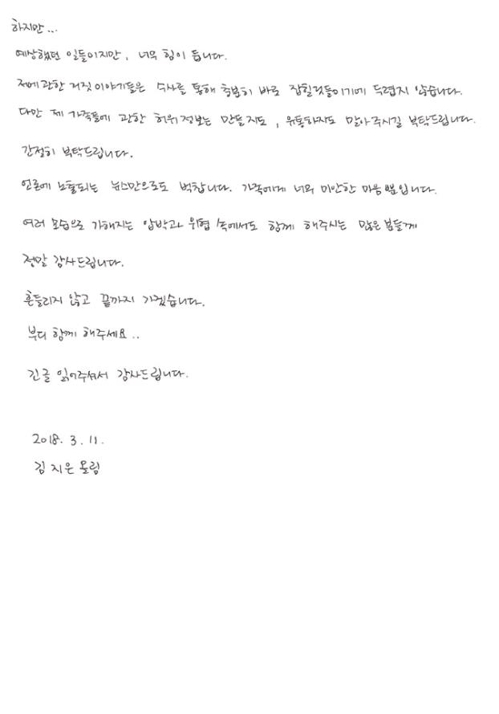 하지만...
예상했던 일들이지만, 너무 힘이 듭니다.
저에 관한 거짓 이야기들은 수사를 통해 충분히 바로 잡힐것들이기에 두렵지 않습니다.
다만 제 가족들에 관한 허위 정보는 만들지도, 유통하지도 말아주시길 부탁드립니다.
간절히 부탁드립니다.
언론에 노출되는 뉴스만으로도 벅찹니다. 가족에게 너무 미안한 마음뿐입니다.
여러 모습으로 가해지는 압박과 위협 속에서도 함께 해주시는 많은 분들께
정말 감사드립니다.
흔들리지 않고 끝까지 가겠습니다.
부디 함께 해주세요..
긴글 읽어주셔서 감사드립니다.
2018. 3. 11.
김지은 올림